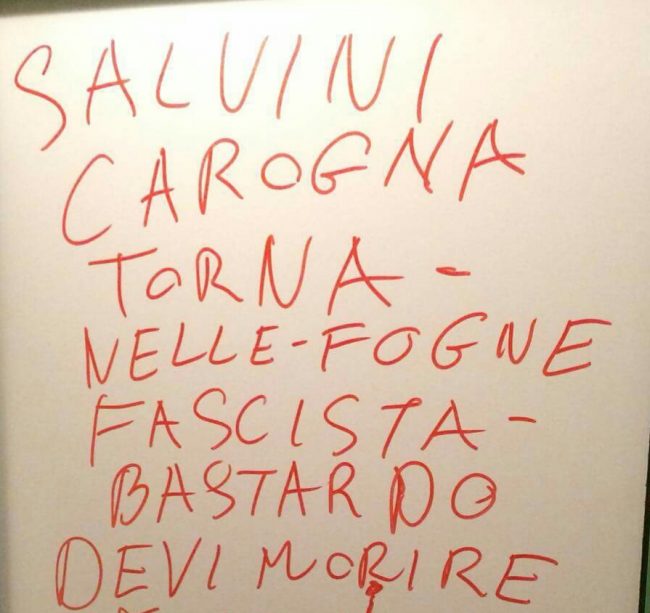 SALVINI
CAROGNA
TORNA -
NELLE-FOGNE
FASCISTA -
BASTARDO
DEVI MORIRE